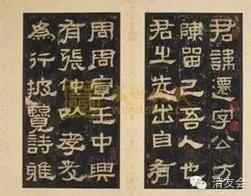 君諱遷字公方
陳留己吾人也
君之先出自有
周周宣王中興
有張仲以孝友
為行披覽詩雅
清友会